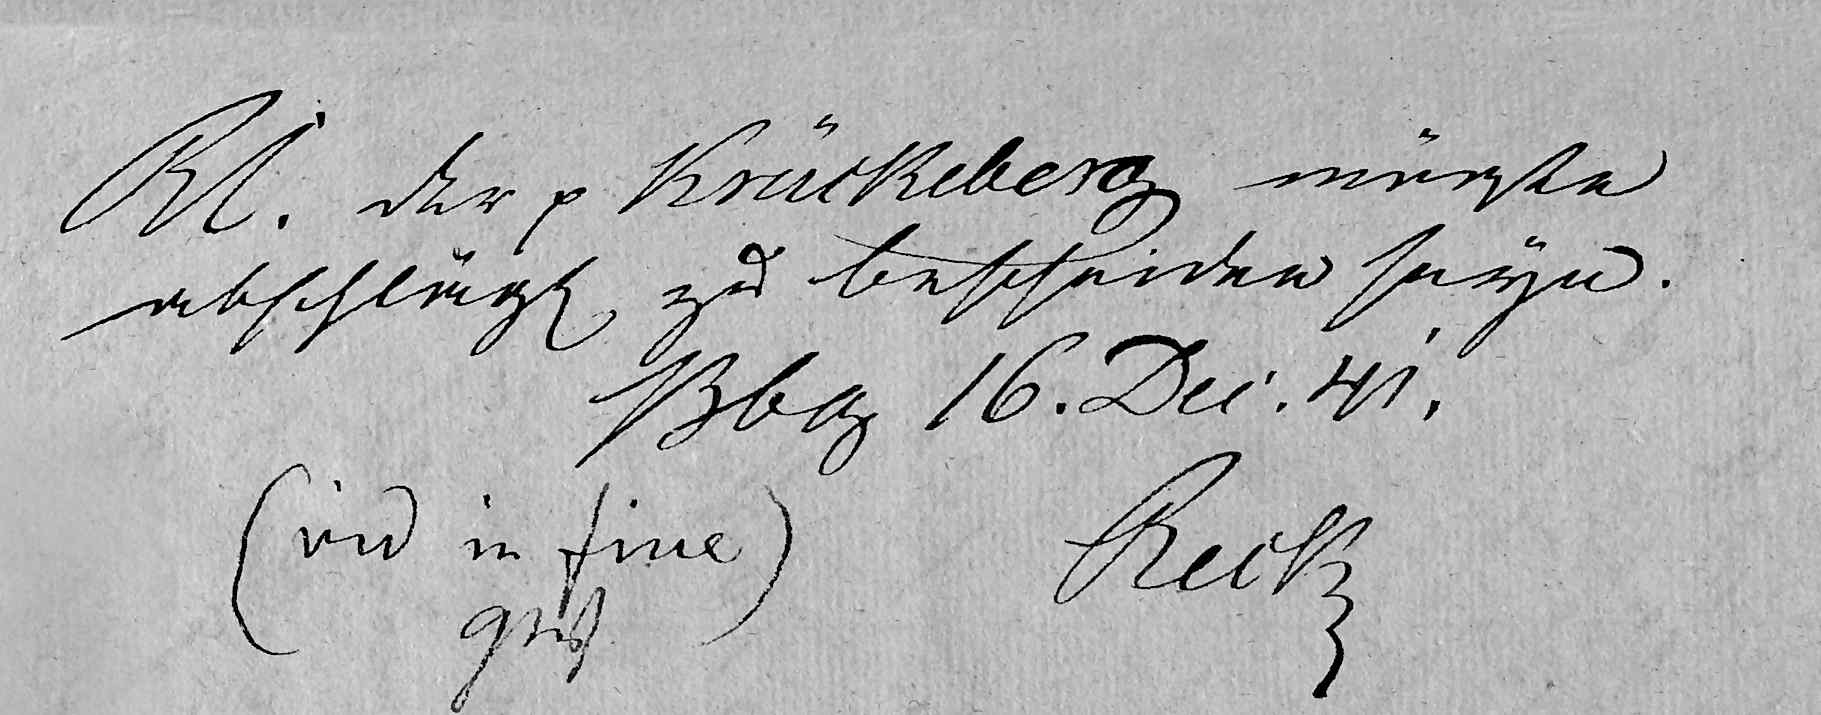 Rl. der p Krückeberg würde
abschlägl zu bescheiden seyn.
Bbg 16. Dec. 41.
(vid in fine)
Reck